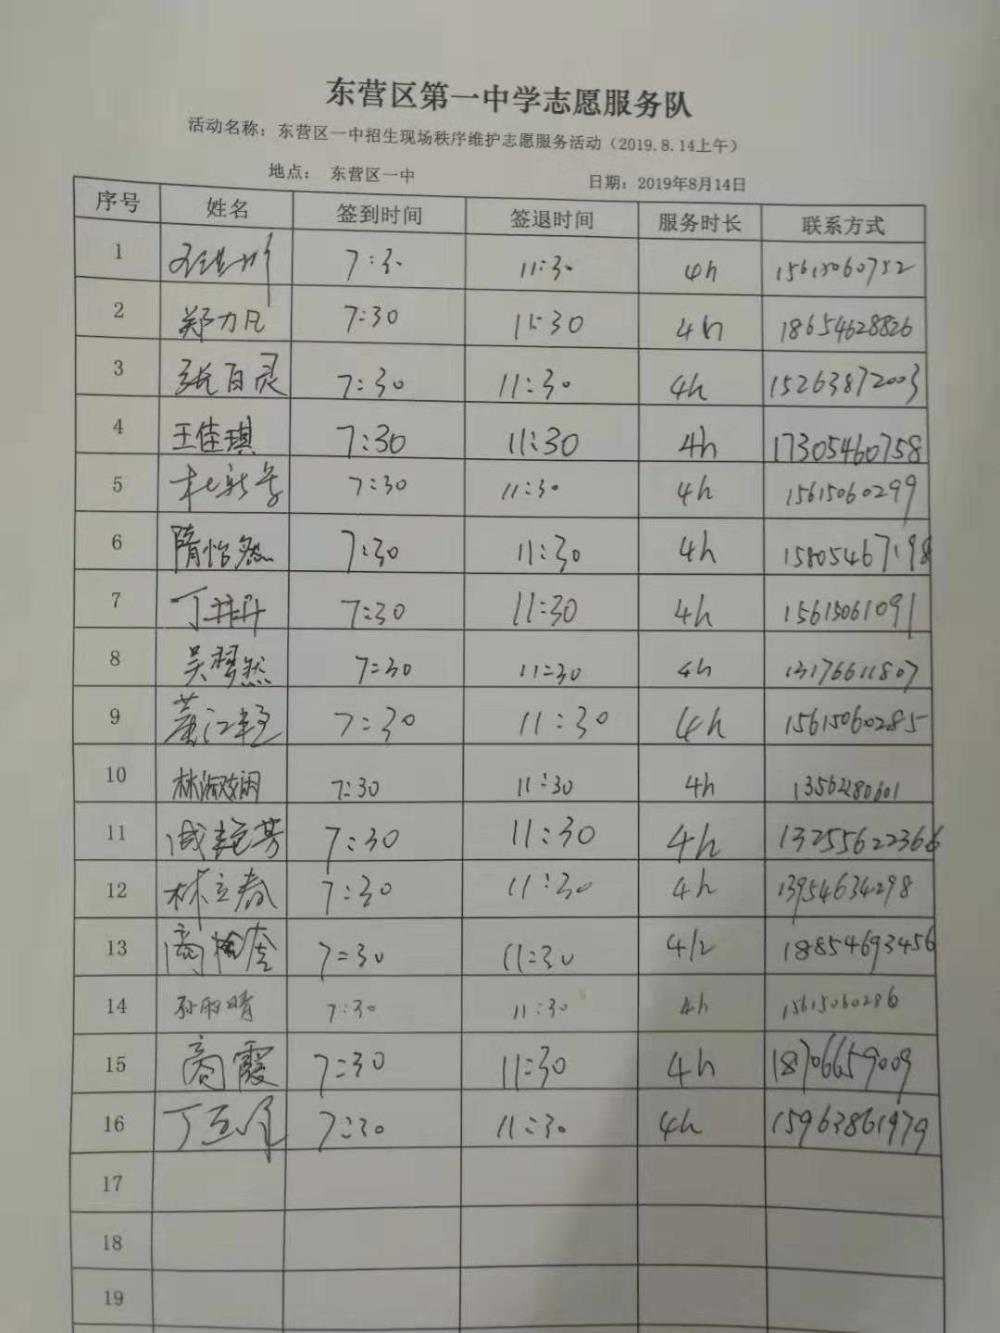 东营区第一中学志愿服务队
活动名称：东营区一中招生现场秩序维护志愿服务活动（2019.8.14上午）
地点： 东营区一中 日期：2019年8月14日
序号 姓名 签到时间 签退时间 服务时长 联系方式
1 7:3. 11:30 4h 15615060752
2 郑力凡 7:30 11:30 4h 18654628826
3 张百灵 7:30 11:30 4h 15263872003
4 王佳琪 7:30 11:30 4h 17305460758
5 杜新芳 7:30 11:30 4h 15615060299
6 隋怡然 7:30 11:30 4h 15805467198
7 丁丹丹 7:30 11:30 4h 15615061091
8 吴翠然 7:30 11:30 4h 13176611807
9 董江程 7:30 11:30 4h 15615060285
10 林淑娴 7:30 11:30 4h
11 成艳芳 7:30 11:30 4h 13255622366
12 林立春 7:30 11:30 4h 13954634298
13 7:30 11:30 4h 18854693456
14 孙雨晴 7:30 11:30 4h 15615060286
15 商霞 7:30 11:30 4h 18706659009
16 7:30 11:30 4h 15963861979
17
18
19